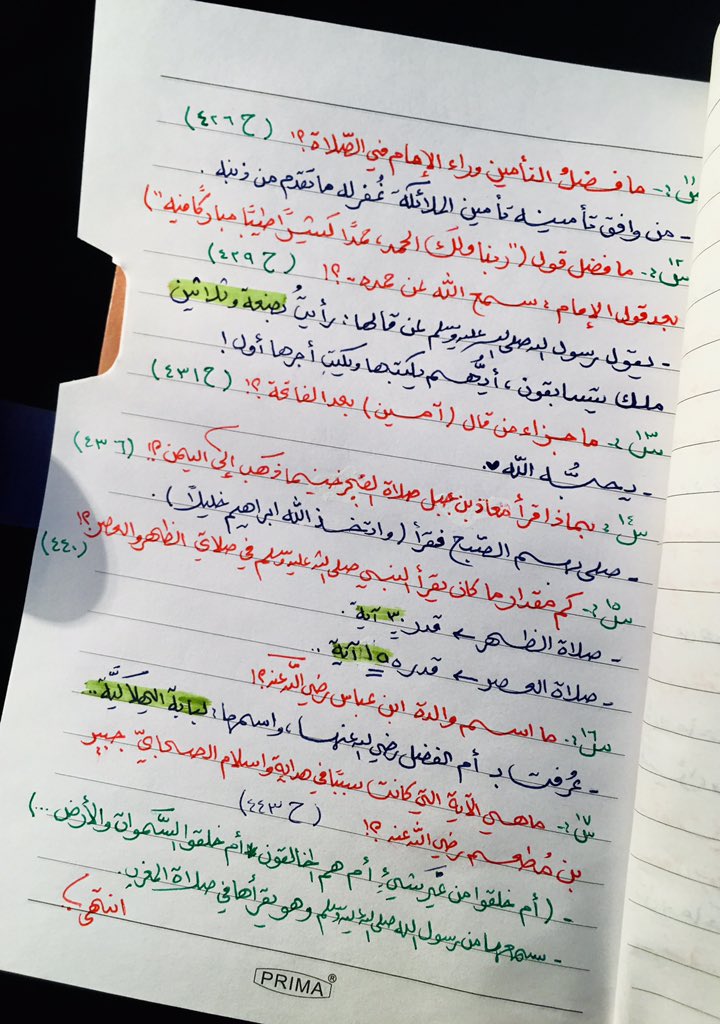 س١١:- ما فضلُ التأمين وراء الإمام في الصّلاة؟! (ح ٤٢٦)
- من وافق تأمينه تأمين الملائكة غُفر له ما تقدم من ذنبه .
س١٢:- ما فضل قول ("ربنا ولك الحمد، حمدًا كثيرًا طيبًا مباركًا فيه")
بعد قول الإمام : سمع الله لمن حمده..؟! (ح ٤٢٩)
- يقول رسول الله صلى الله عليه وسلم لمن قالها: رأيتُ بضعة وثلاثين
ملك يتسابقون ، أيُّهم يكتبها ويكتب أجرها أول !
س١٣:- ما جزاء من قال (آمين) بعد الفاتحة؟! (ح ٤٣١)
- يحبُّه الله ♥.
س١٤:- بماذا قرأ معاذ بن جبل صلاة الفجر حينما ذهب إلى اليمن؟! (٤٣٦)
- صلى بهم الصّبح فقرأ (واتخذ الله ابراهيم خليلاً) .
س١٥:- كم مقدار ما كان يقرأ النبي صلى الله عليه وسلم في صلاتي الظهر والعصر؟!
(٤٤٠)
- صلاة الظهر ← قدر ٣٠ آية .
- صلاة العصر ← قدر ١٥ آية ..
س١٦:- ما اسم والدة ابن عباس رضي الله عنه؟!
- عُرفت بـ أم الفضل رضي الله عنها، واسمها: لبابة الهلاليَّة..
س١٧:- ماهي الآية التي كانت سببًا في هداية واسلام الصحابيّ جبير
بن مُطعم رضي الله عنه ؟! (ح ٤٤٣)
- (أم خلقوا من غير شيءٍ أم هم الخالقون * أم خلقوا السَّموات والأرض ...)
- سمعها من رسول الله صلى الله عليه وسلم وهو يقرأها في صلاة المغرب.
انتهى
PRIMA®